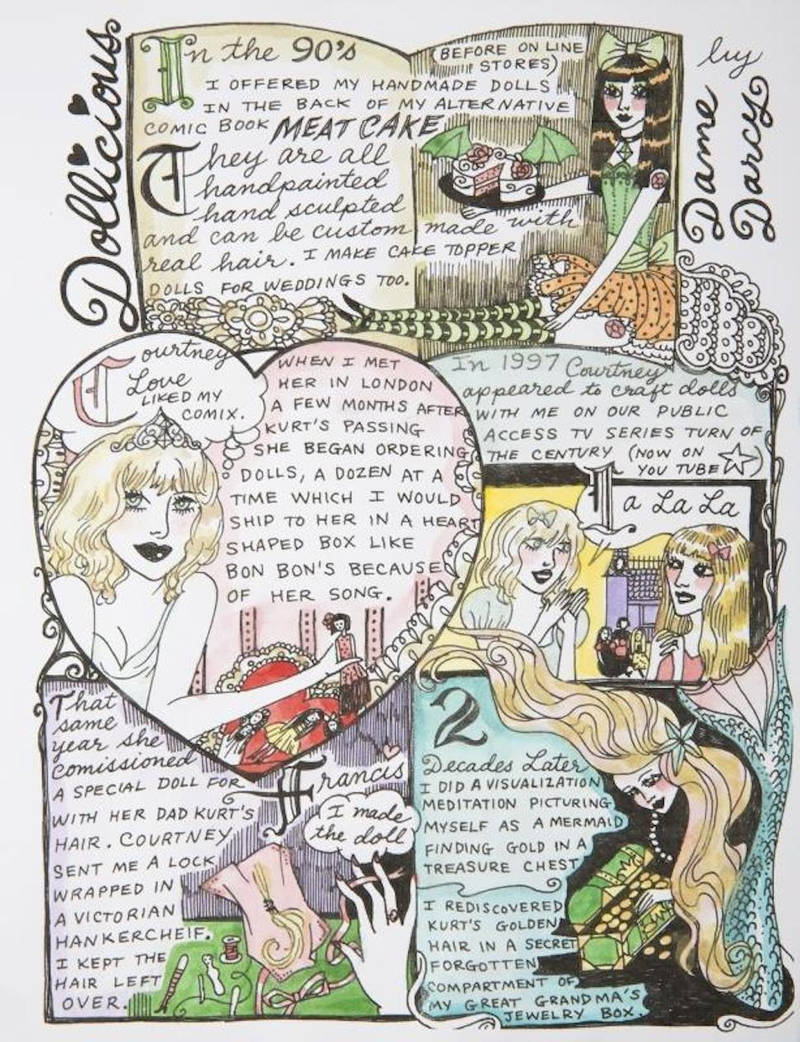 Dollicious
by
Dame
Darcy
In the 90's
I OFFERED MY HANDMADE DOLLS
IN THE BACK OF MY ALTERNATIVE
COMIC BOOK MEAT CAKE
(BEFORE ON LINE
STORES)
They are all
handpainted
hand sculpted
and can be custom made with
real hair. I MAKE CAKE TOPPER
DOLLS FOR WEDDINGS TOO.
Courtney
Love
LIKED MY
COMIX.
WHEN I MET
HER IN LONDON
A FEW MONTHS AFTER
KURT'S PASSING
SHE BEGAN ORDERING
DOLLS, A DOZEN AT A
TIME WHICH I WOULD
SHIP TO HER IN A HEART
SHAPED BOX LIKE
BON BON'S BECAUSE
OF HER SONG.
In 1997 Courtney
appeared to craft dolls
WITH ME ON OUR PUBLIC
ACCESS TV SERIES TURN OF
THE CENTURY (NOW ON
YOU TUBE)
La La La
That
same
year she
comissioned
A SPECIAL DOLL FOR
Francis
WITH HER DAD KURT'S
HAIR. COURTNEY
SENT ME A LOCK
WRAPPED IN
A VICTORIAN
HANKERCHEIF.
I KEPT THE
HAIR LEFT
OVER.
I made
the doll
2
Decades Later
I DID A VISUALIZATION
MEDITATION PICTURING
MYSELF AS A MERMAID
FINDING GOLD IN A
TREASURE CHEST
I REDISCOVERED
KURT'S GOLDEN
HAIR IN A SECRET
FORGOTTEN
COMPARTMENT OF
MY GREAT GRANDMA'S
JEWELRY BOX.